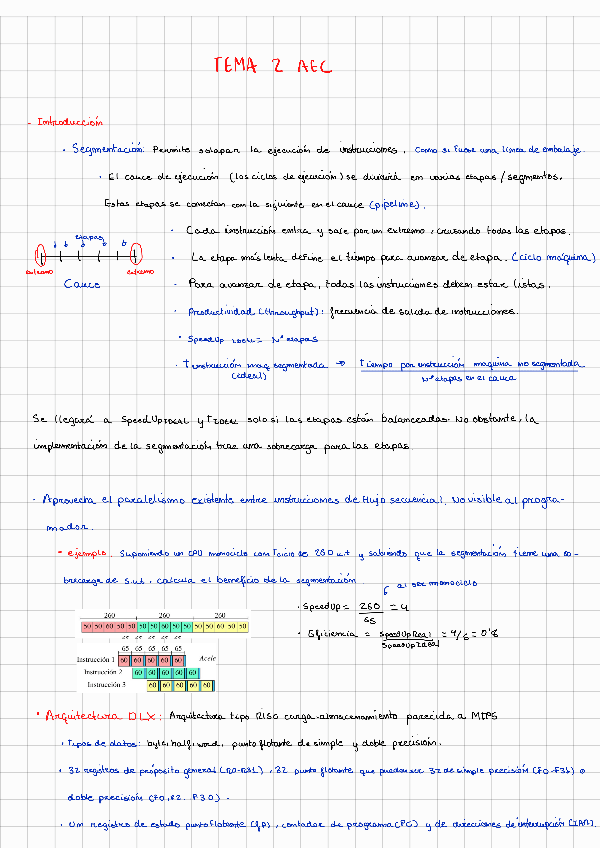 TEMA 2 AEC
- Introducción
· Segmentación: Permite solapar la ejecución de instrucciones. Como si fuese una línea de embalaje.
· El cauce de ejecución (los ciclos de ejecución) se dividirá en varias etapas/segmentos.
Estas etapas se conectan con la siguiente en el cauce (pipeline).
· Cada instrucción entra y sale por un extremo, cruzando todas las etapas.
etapas
extremo extremo
Cauce
· La etapa más lenta define el tiempo para avanzar de etapa. (ciclo máquina)
· Para avanzar de etapa, todas las instrucciones deben estar listas.
· Productividad (throughput): frecuencia de salida de instrucciones.
· SpeedUp IDEAL = Nº etapas
· t instrucción maq segmentada (ideal) → tiempo por instrucción maquina no segmentada
Nº etapas en el cauce
Se llegará a SpeedUp IDEAL y t IDEAL solo si las etapas están balanceadas. No obstante, la
implementación de la segmentación trae una sobrecarga para las etapas.
- Aprovecha el paralelismo existente entre instrucciones de flujo secuencial. No visible al progra-
mador.
• ejemplo: Suponiendo un CPU monociclo con Tciclo de 260 u.t y sabiendo que la segmentación tiene una so-
brecarga de 5 u.t, calcula el beneficio de la segmentación.
al ser monociclo
· SpeedUp = 260/65 = 4
· Eficiencia = SpeedUpReal/SpeedUpIdeal = 4/5 = 0'8
260 260 260
50 50 60 50 50 50 50 60 50 50 50 50 60 50 50
65 65 65 65 65
Instrucción 1 60 60 60 60 60 Acele
Instrucción 2 60 60 60 60 60
Instrucción 3 60 60 60 60 60
• Arquitectura DLX: Arquitectura tipo RISC carga-almacenamiento parecida a MIPS
· Tipos de datos: byte, half, word, punto flotante de simple y doble precisión.
· 32 registros de propósito general (R0-R31), 32 punto flotante que pueden ser 32 de simple precisión (F0-F31) o
doble precisión (F0, F2.. F30).
· Un registro de estado punto flotante, contador de programa (PC) y de direcciones de interrupción (IAR).